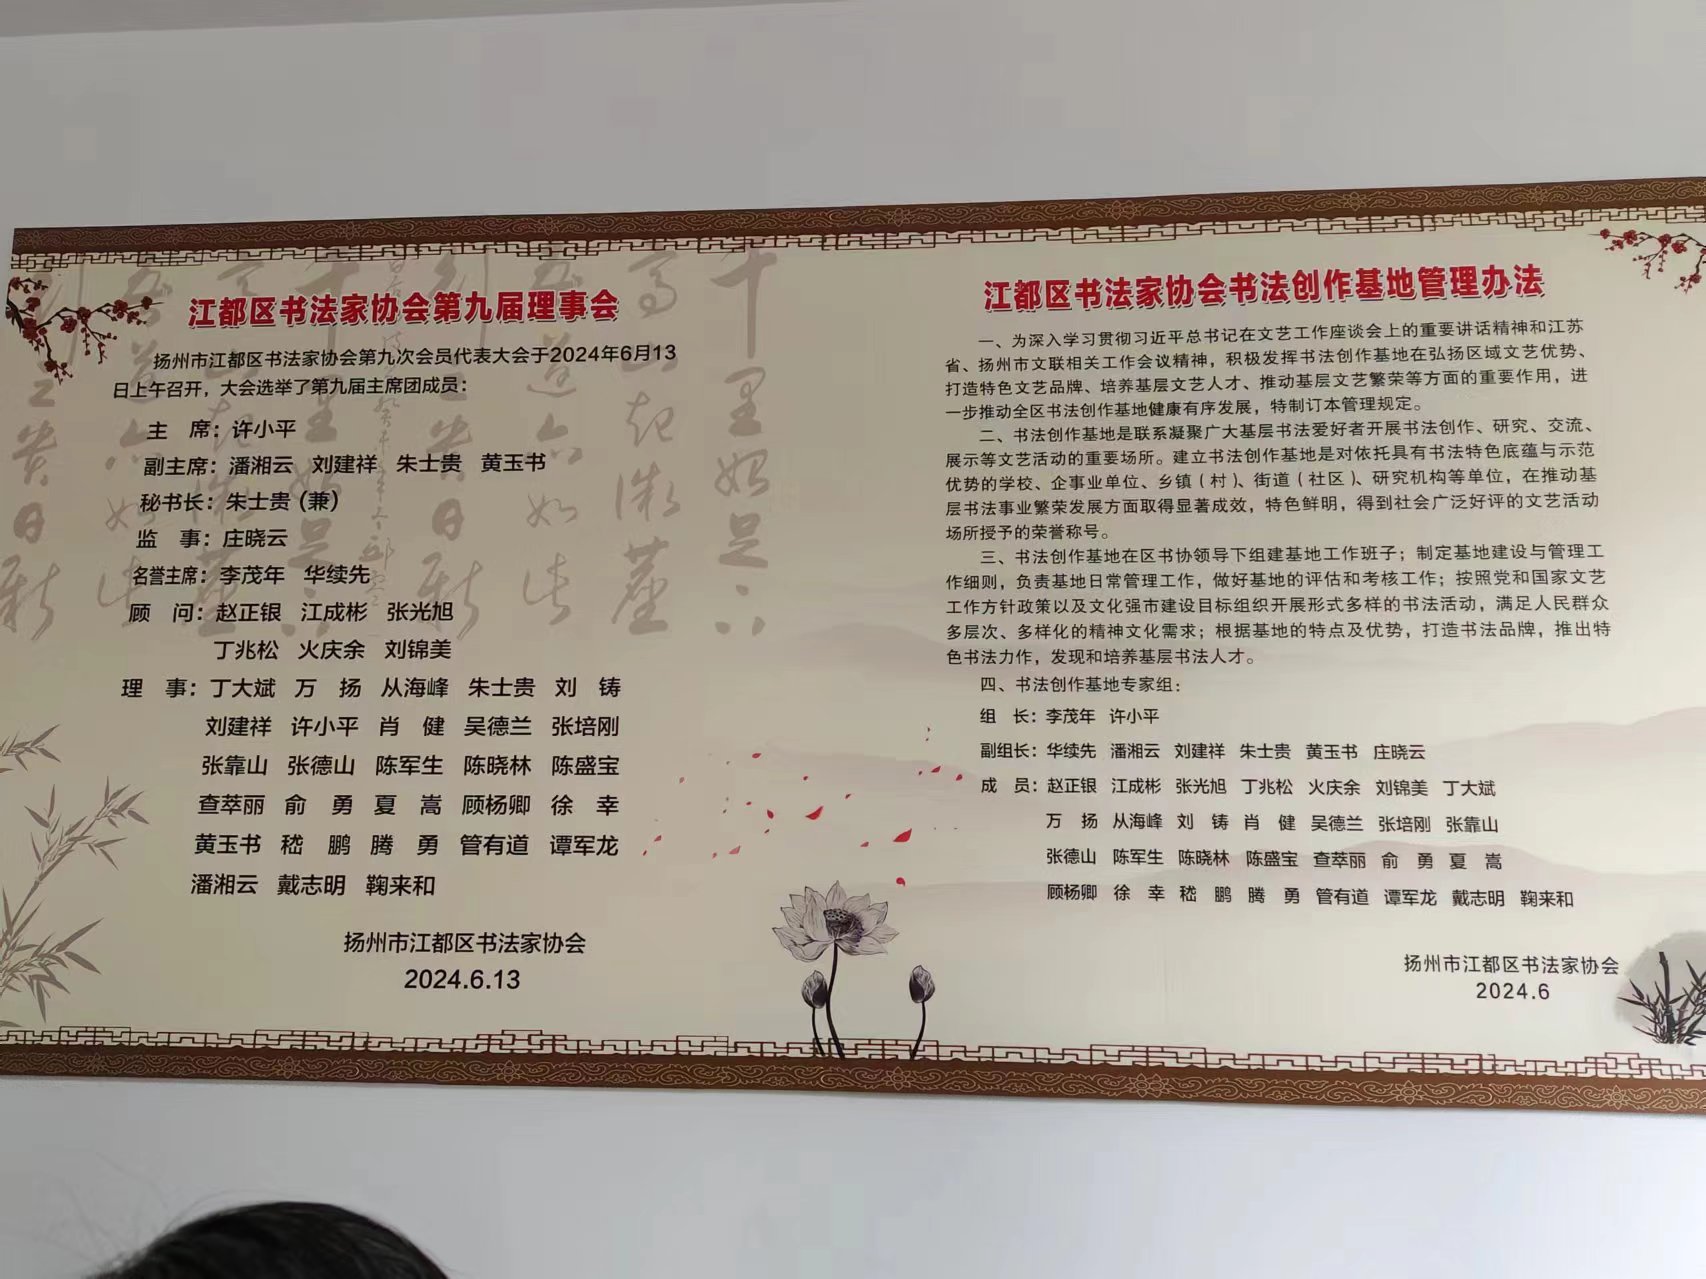 江都区书法家协会第九届理事会
扬州市江都区书法家协会第九次会员代表大会于2024年6月13
日上午召开，大会选举了第九届主席团成员：
主　席：许小平
副主席：潘湘云　刘建祥　朱士贵　黄玉书
秘书长：朱士贵（兼）
监　事：庄晓云
名誉主席：李茂年　华续先
顾　问：赵正银　江成彬　张光旭
丁兆松　火庆余　刘锦美
理　事：丁大斌　万　扬　从海峰　朱士贵　刘　铸
刘建祥　许小平　肖　健　吴德兰　张培刚
张靠山　张德山　陈军生　陈晓林　陈盛宝
查萃丽　俞　勇　夏　嵩　顾杨卿　徐　幸
黄玉书　嵇　鹏　腾　勇　管有道　谭军龙
潘湘云　戴志明　鞠来和
扬州市江都区书法家协会
2024.6.13
江都区书法家协会书法创作基地管理办法
一、为深入学习贯彻习近平总书记在文艺工作座谈会上的重要讲话精神和江苏
省、扬州市文联相关工作会议精神，积极发挥书法创作基地在弘扬区域文艺优势、
打造特色文艺品牌、培养基层文艺人才、推动基层文艺繁荣等方面的重要作用，进
一步推动全区书法创作基地健康有序发展，特制订本管理规定。
二、书法创作基地是联系凝聚广大基层书法爱好者开展书法创作、研究、交流、
展示等文艺活动的重要场所。建立书法创作基地是对依托具有书法特色底蕴与示范
优势的学校、企事业单位、乡镇（村）、街道（社区）、研究机构等单位，在推动基
层书法事业繁荣发展方面取得显著成效，特色鲜明，得到社会广泛好评的文艺活动
场所授予的荣誉称号。
三、书法创作基地在区书协领导下组建基地工作班子；制定基地建设与管理工
作细则，负责基地日常管理工作，做好基地的评估和考核工作；按照党和国家文艺
工作方针政策以及文化强市建设目标组织开展形式多样的书法活动，满足人民群众
多层次、多样化的精神文化需求；根据基地的特点及优势，打造书法品牌，推出特
色书法力作，发现和培养基层书法人才。
四、书法创作基地专家组：
组　长：李茂年　许小平
副组长：华续先　潘湘云　刘建祥　朱士贵　黄玉书　庄晓云
成　员：赵正银　江成彬　张光旭　丁兆松　火庆余　刘锦美　丁大斌
万　扬　从海峰　刘　铸　肖　健　吴德兰　张培刚　张靠山
张德山　陈军生　陈晓林　陈盛宝　查萃丽　俞　勇　夏　嵩
顾杨卿　徐　幸　嵇　鹏　腾　勇　管有道　谭军龙　戴志明　鞠来和
扬州市江都区书法家协会
2024.6